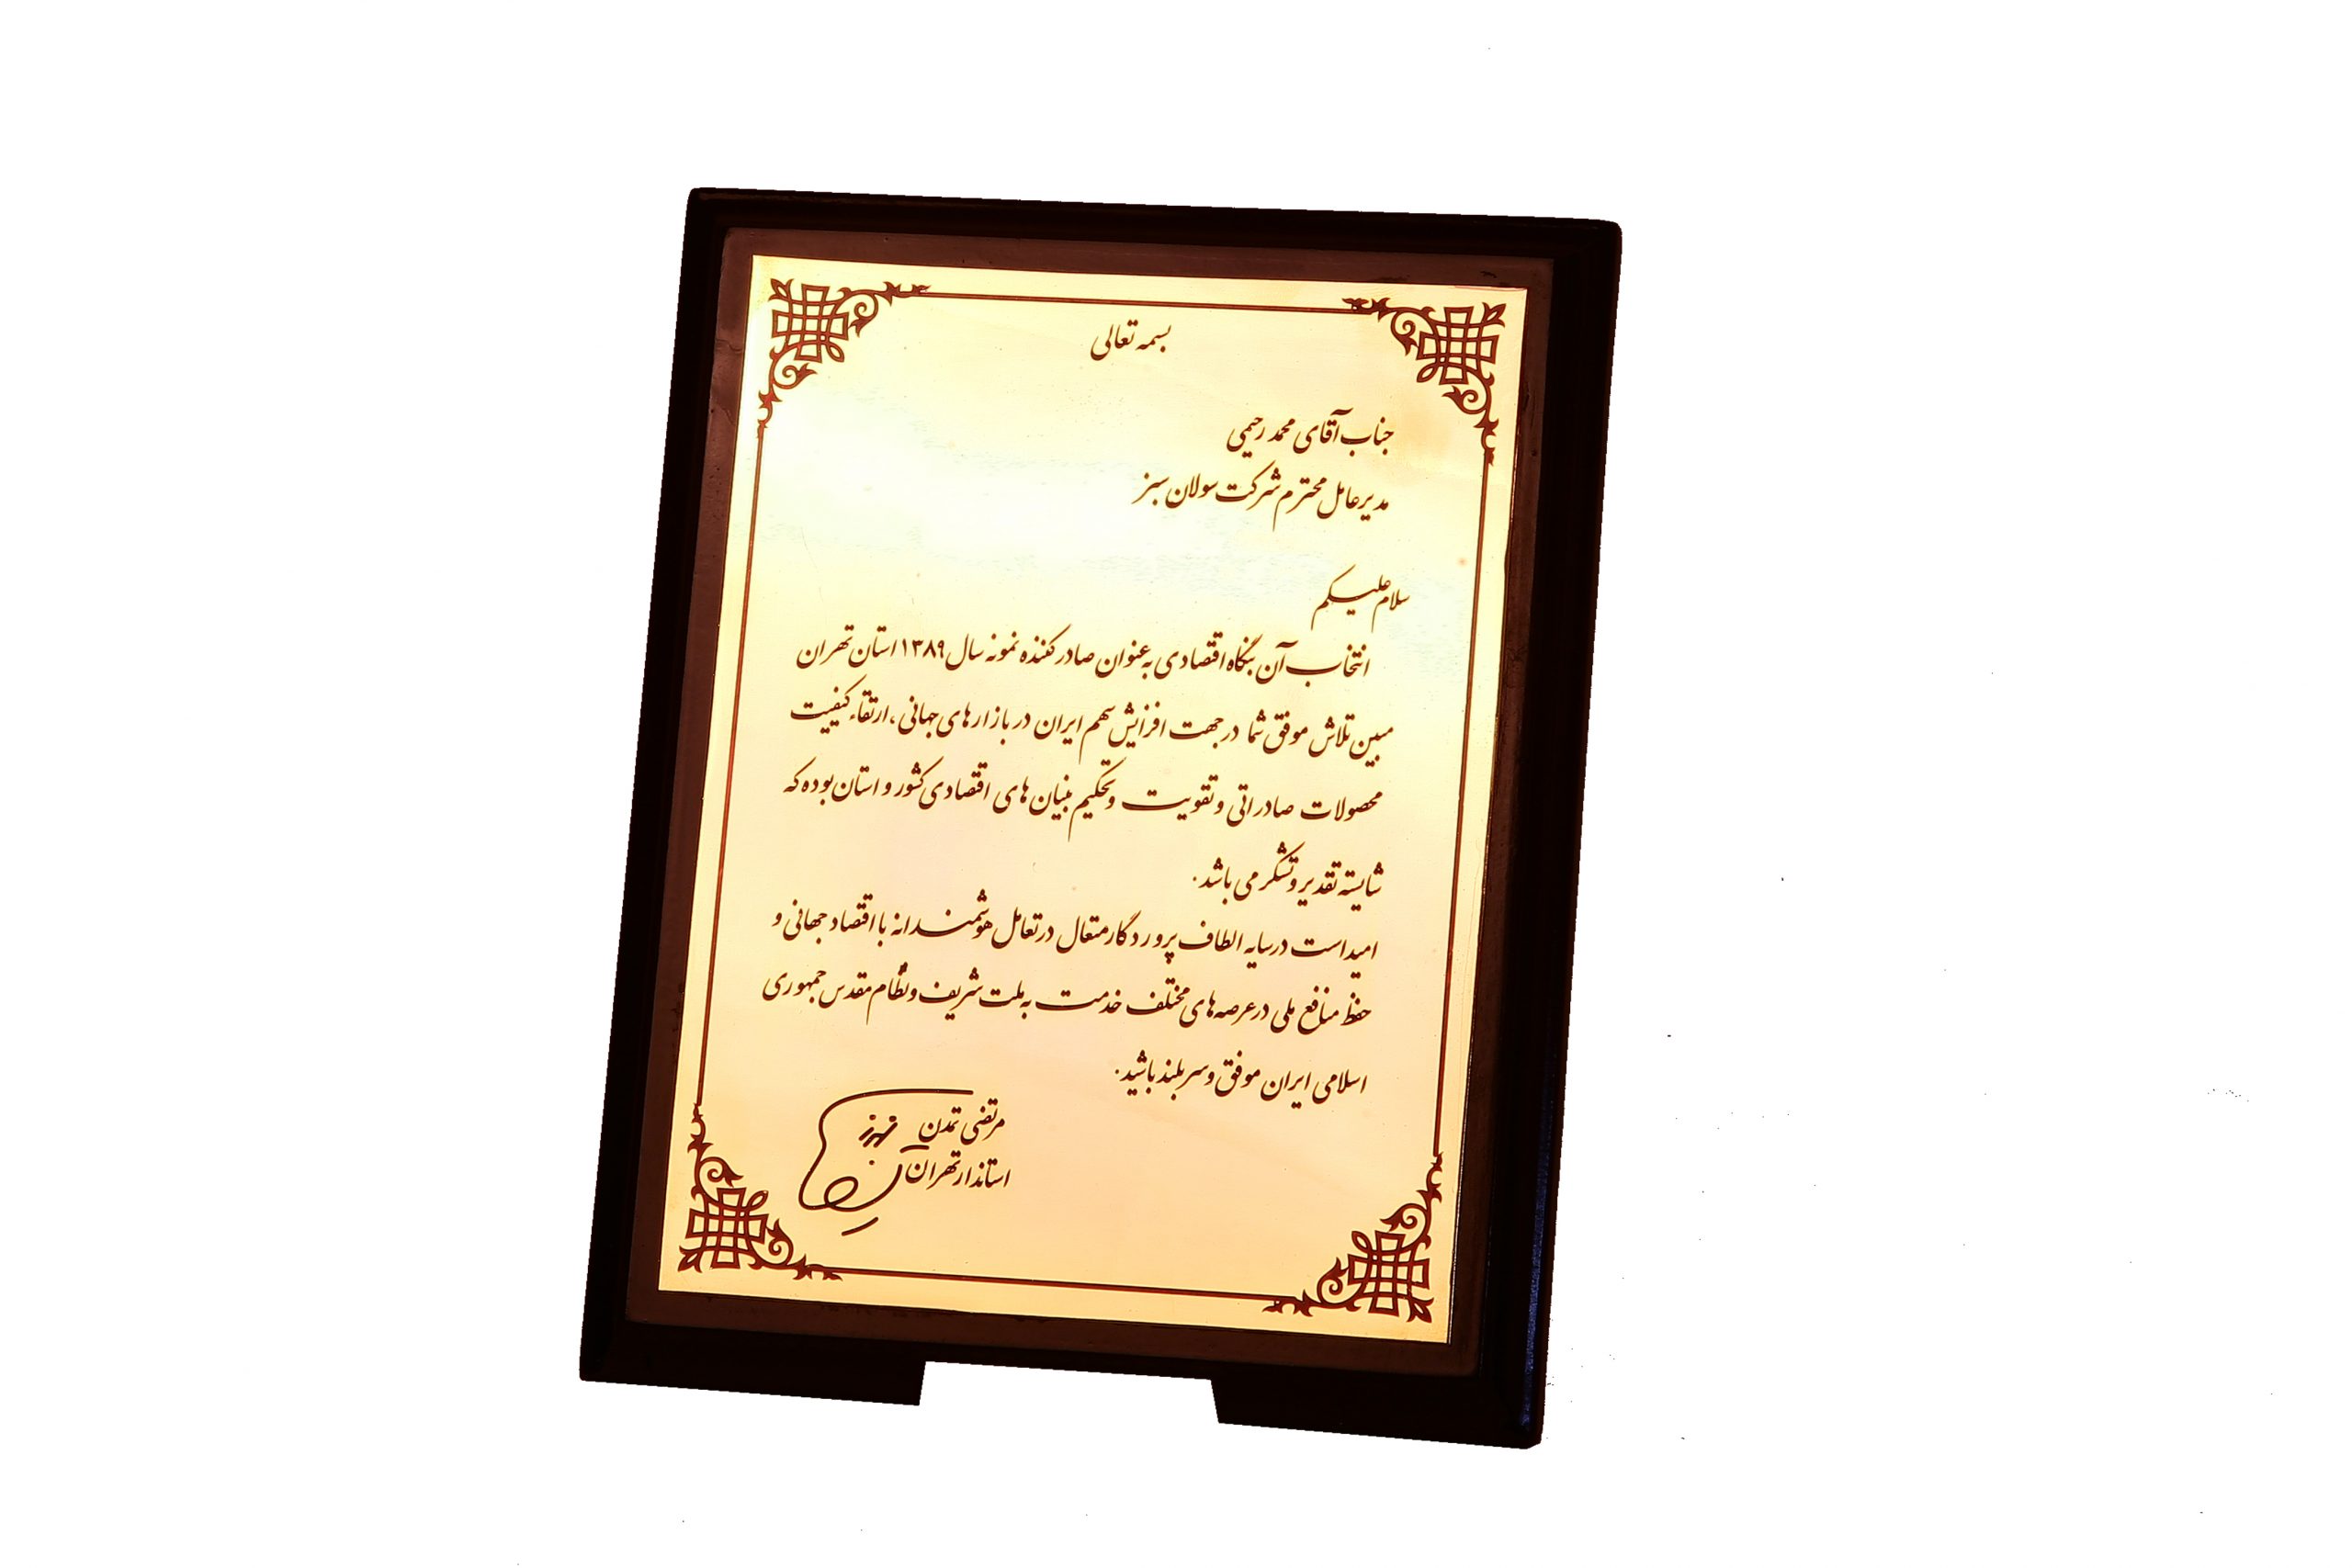 بسمه تعالی
جناب آقای محمد رحیمی
مدیرعامل محترم شرکت سولان سبز
سلام علیکم
انتخاب آن بنگاه اقتصادی به عنوان صادر کننده نمونه سال ۱۳۸۹ استان تهران
مبین تلاش موفق شما در جهت افزایش سهم ایران در بازارهای جهانی، ارتقاء کیفیت
محصولات صادراتی و تقویت و تحکیم بنیان های اقتصادی کشور و استان بوده که
شایسته تقدیر و تشکر می باشد.
امید است در سایه الطاف پروردگار متعال در تعامل هوشمندانه با اقتصاد جهانی و
حفظ منافع ملی در عرصه های مختلف خدمت به ملت شریف و نظام مقدس جمهوری
اسلامی ایران موفق و سربلند باشید.
مرتضی تمدن
استاندار تهران